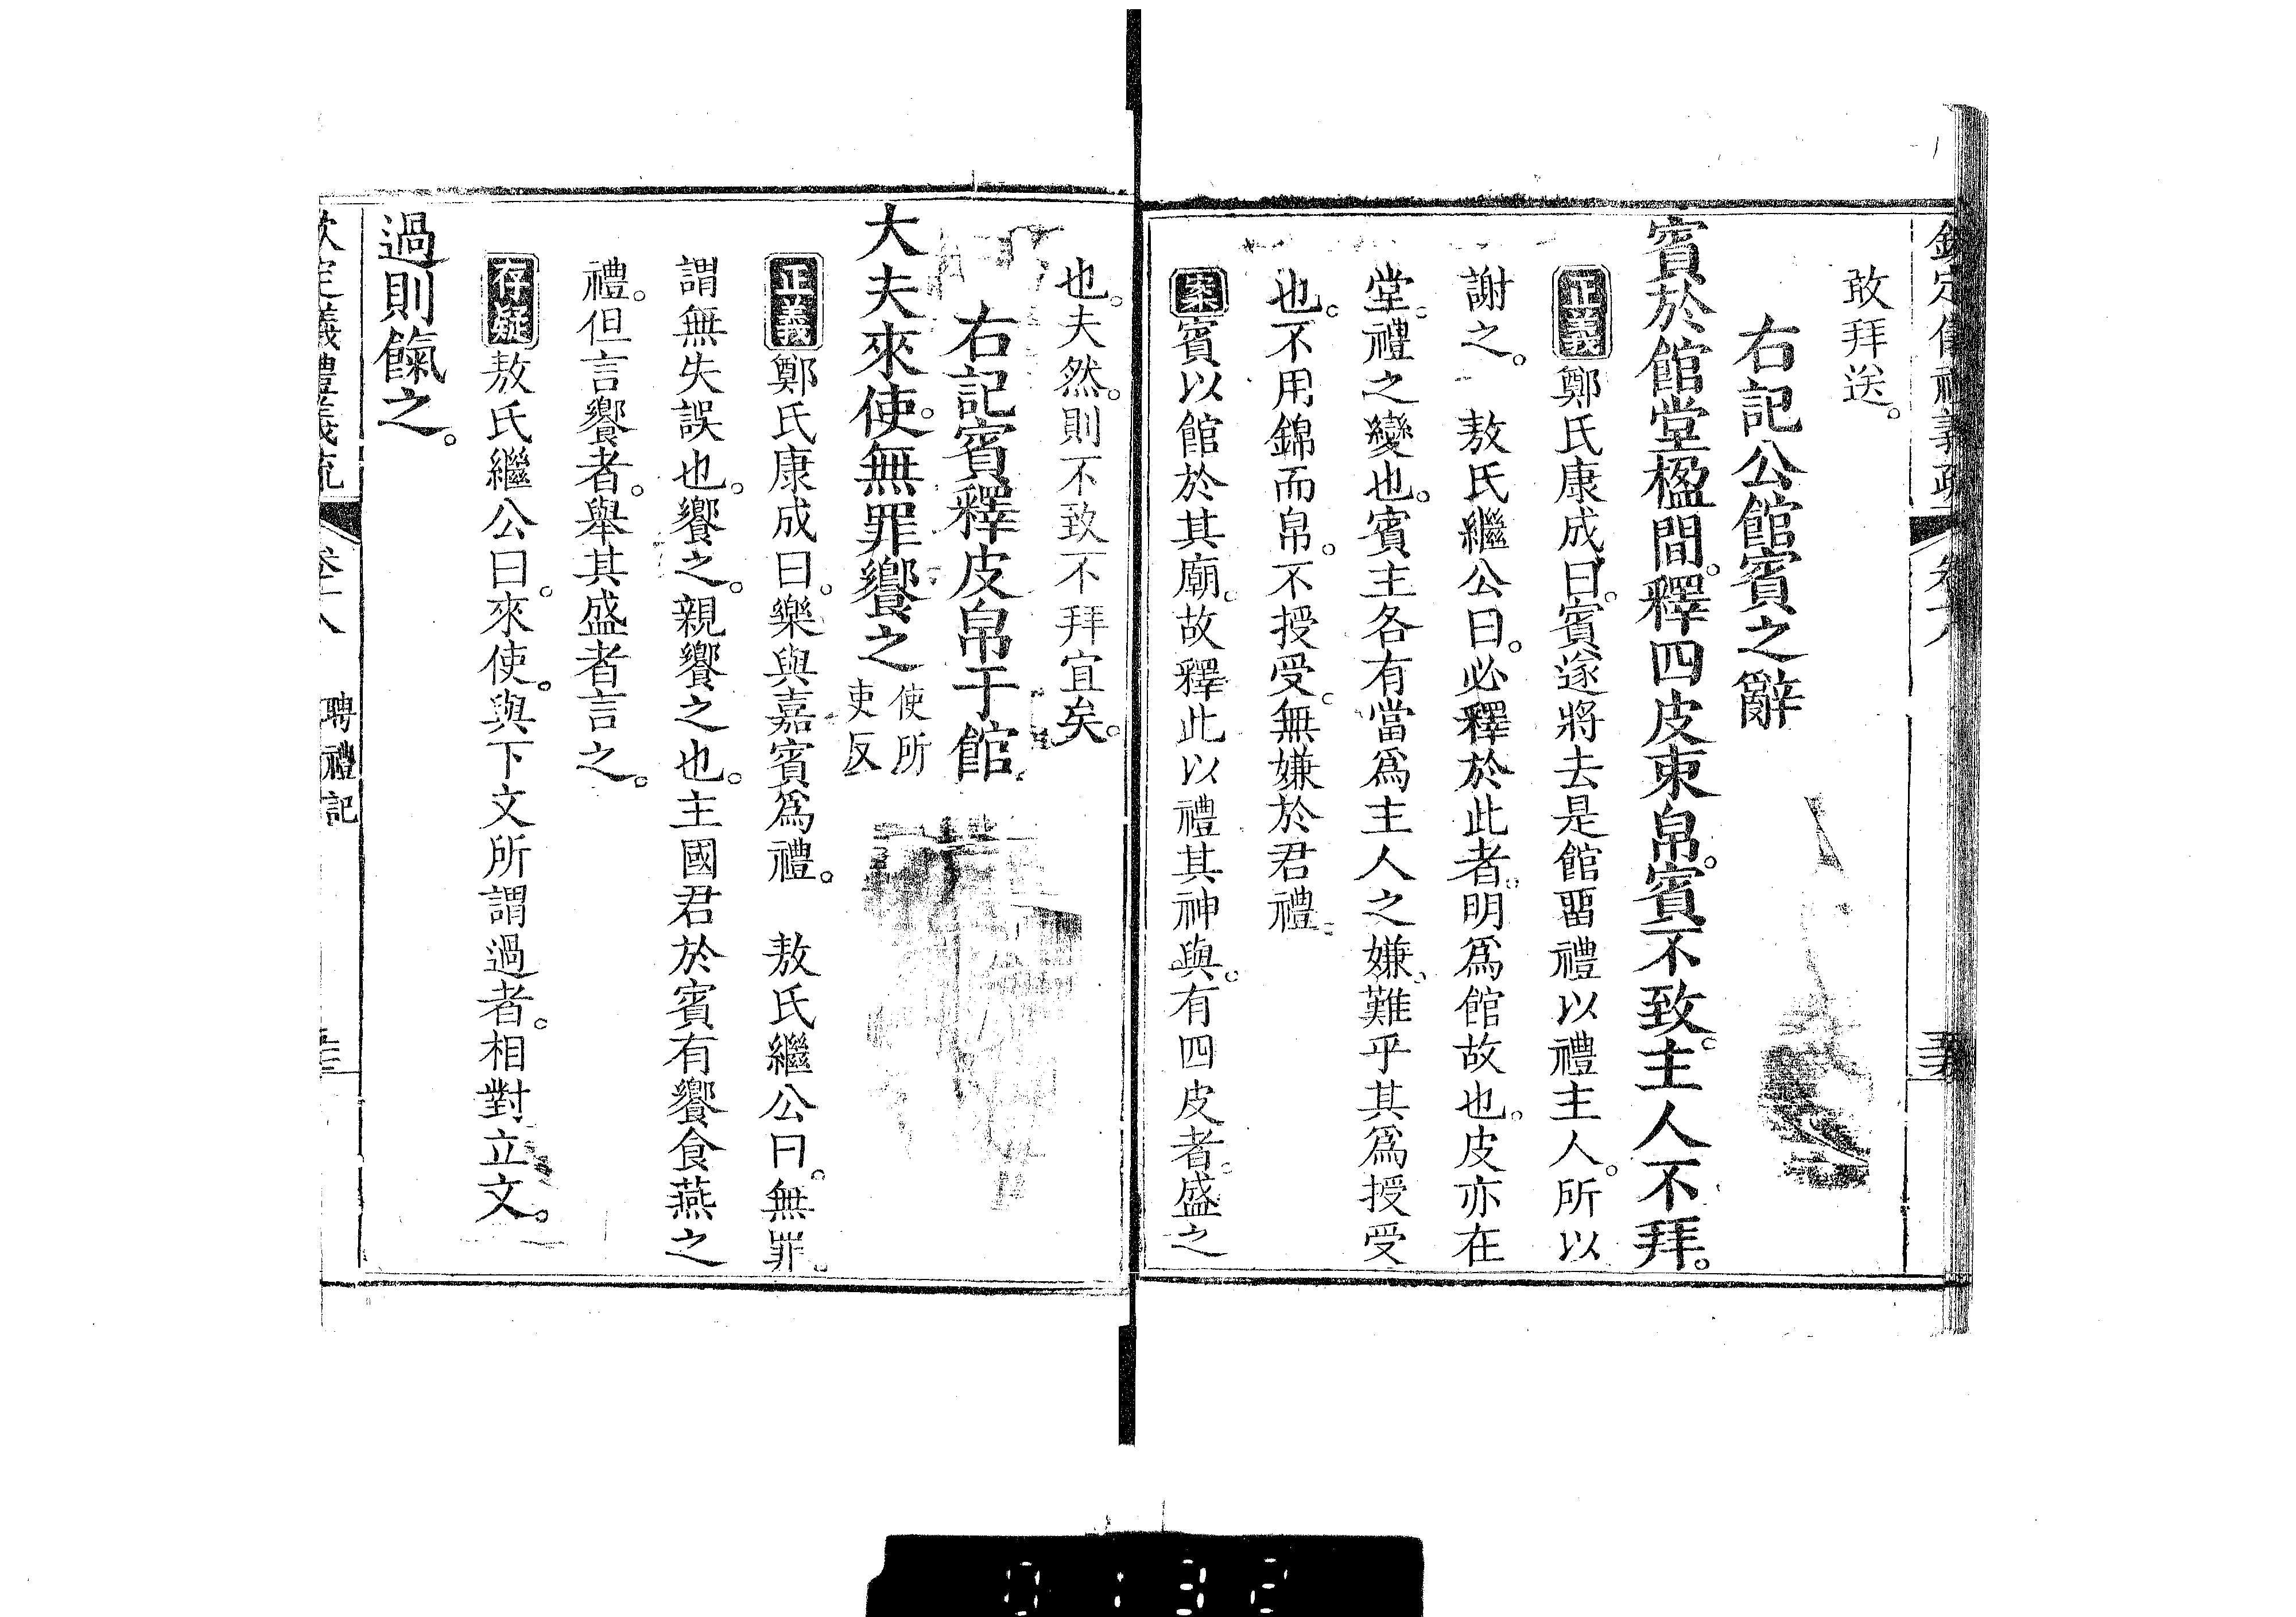 敢拜送。
右記公館賓之辭
賓於館堂楹間。釋四皮束帛。賓不致。主人不拜。
正義鄭氏康成曰。賓遂將去是館留禮以禮主人。所以
謝之。 敖氏繼公曰。必釋於此者。明爲館故也。皮亦在
堂。禮之變也。賓主各有當爲主人之嫌、難乎其爲授受
也。不用錦而帛。不授受。無嫌於君禮。
案賓以館於其廟。故釋此以禮其神與。有四皮者。盛之
也。夫然。則不致不拜宜矣。
右記賓釋皮帛于館
大夫來使。無罪饗之使所吏反
正義鄭氏康成曰。樂與嘉賓爲禮。 敖氏繼公曰。無罪。
謂無失誤也。饗之。親饗之也。主國君於賓有饗食燕之
禮。但言饗者。舉其盛者言之。
存疑敖氏繼公曰。來使。與下文所謂過者。相對立文。
過則餼之。
欽定義禮義疏 卷十八 聘禮記